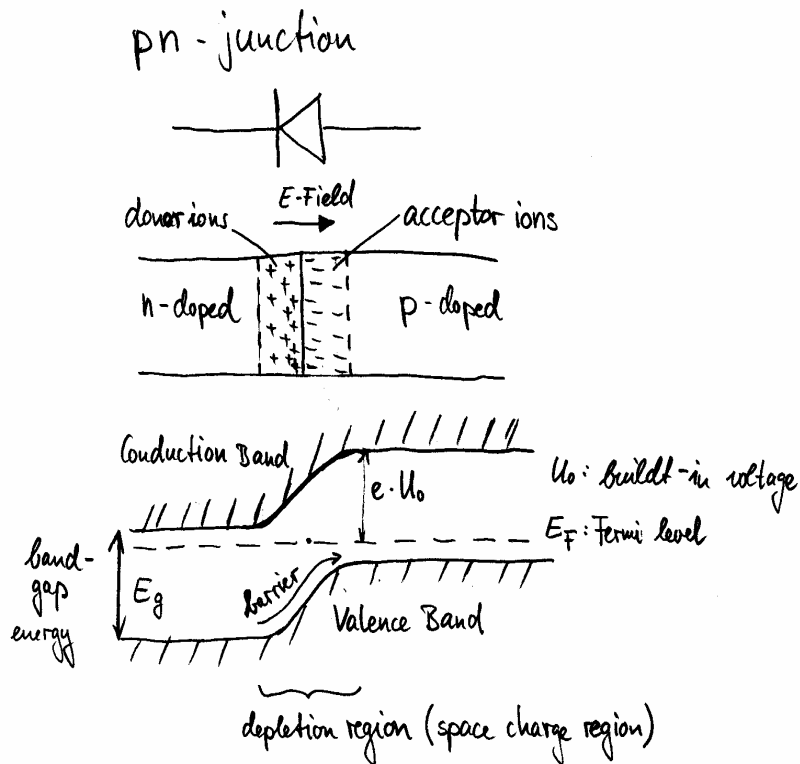 pn-junction
E-Field
donor ions
acceptor ions
n-doped
p-doped
Conduction Band
e·U₀
U₀: buildt-in voltage
E_F: Fermi level
band-
gap
energy
E_g
barrier
Valence Band
depletion region (space charge region)